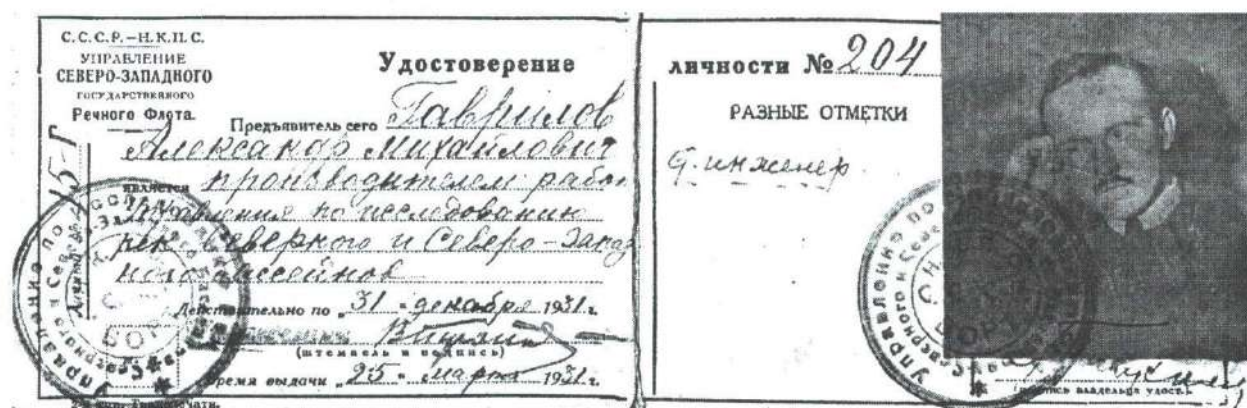 С.С.С.Р.–Н.К.П.С.
УПРАВЛЕНИЕ
СЕВЕРО-ЗАПАДНОГО
ГОСУДАРСТВЕННОГО
Речного Флота.
Удостоверение
Предъявитель сего Гаврилов
Александр Михайлович
является производителем работ
Управления по исследованию
рек Северного и Северо-Запад
ного бассейнов
Действительно по „31" декабря 1931 г.
(штемпель и подпись)
Время выдачи „25" марта 1931 г.
личности № 204
РАЗНЫЕ ОТМЕТКИ
инженер
(подпись владельца удост.)